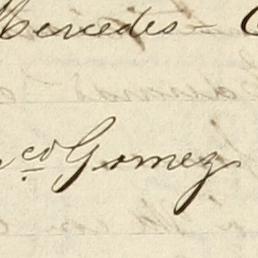 Mercedes =
co Gomez